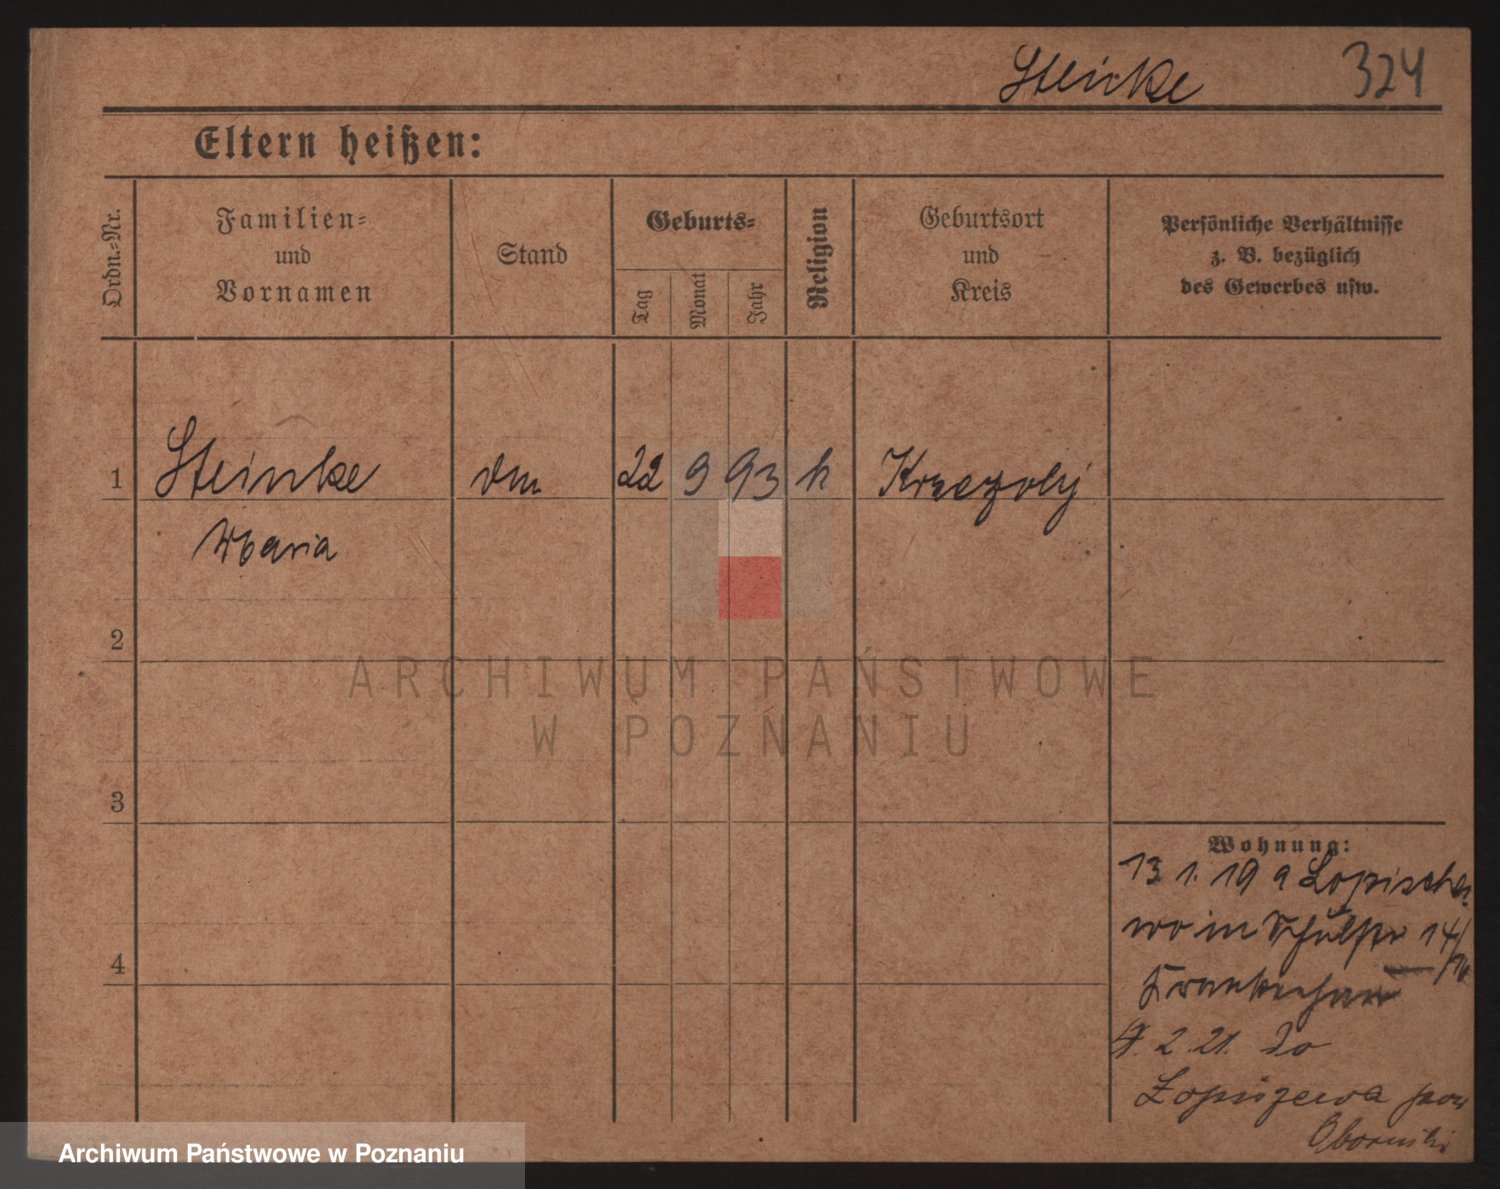 Steinke 324
Eltern heißen:
Ordn.=Nr.
Familien=
und
Vornamen
Stand
Geburts=
Tag
Monat
Jahr
Religion
Geburtsort
und
Kreis
Persönliche Verhältnisse
z. B. bezüglich
des Gewerbes usw.
1 Steinke 22 9 93 k
Maria
2
ARCHIWUM PAŃSTWOWE
W POZNANIU
3
Wohnung:
13 1. 19 a Lopische
wo in Schulstr 14/
4
Krankenhaus
2. 21. do
Łopiszewa pow
Obornicki
Archiwum Państwowe w Poznaniu